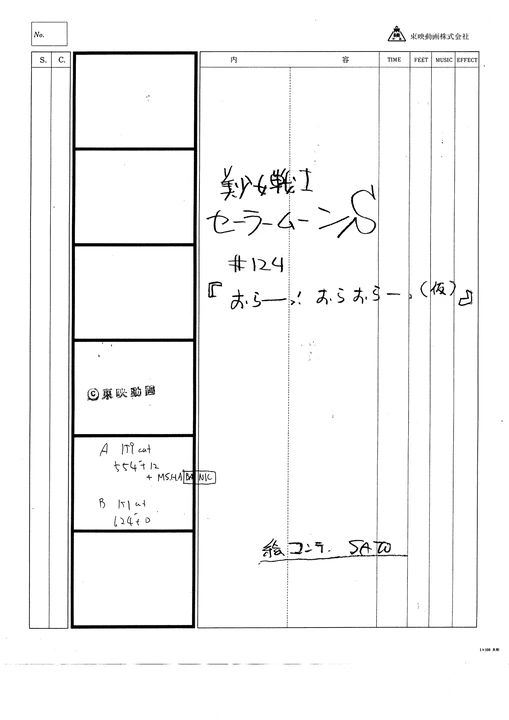 No.
東映動画株式会社
S. C. 内 容 TIME FEET MUSIC EFFECT
美少女戦士
セーラームーンS
#124
『おらーっ! おらおらーっ(仮)』
©東映動画
A 159 cut
554'+12
B 151 cut
624'+0
絵コンテ. SATO